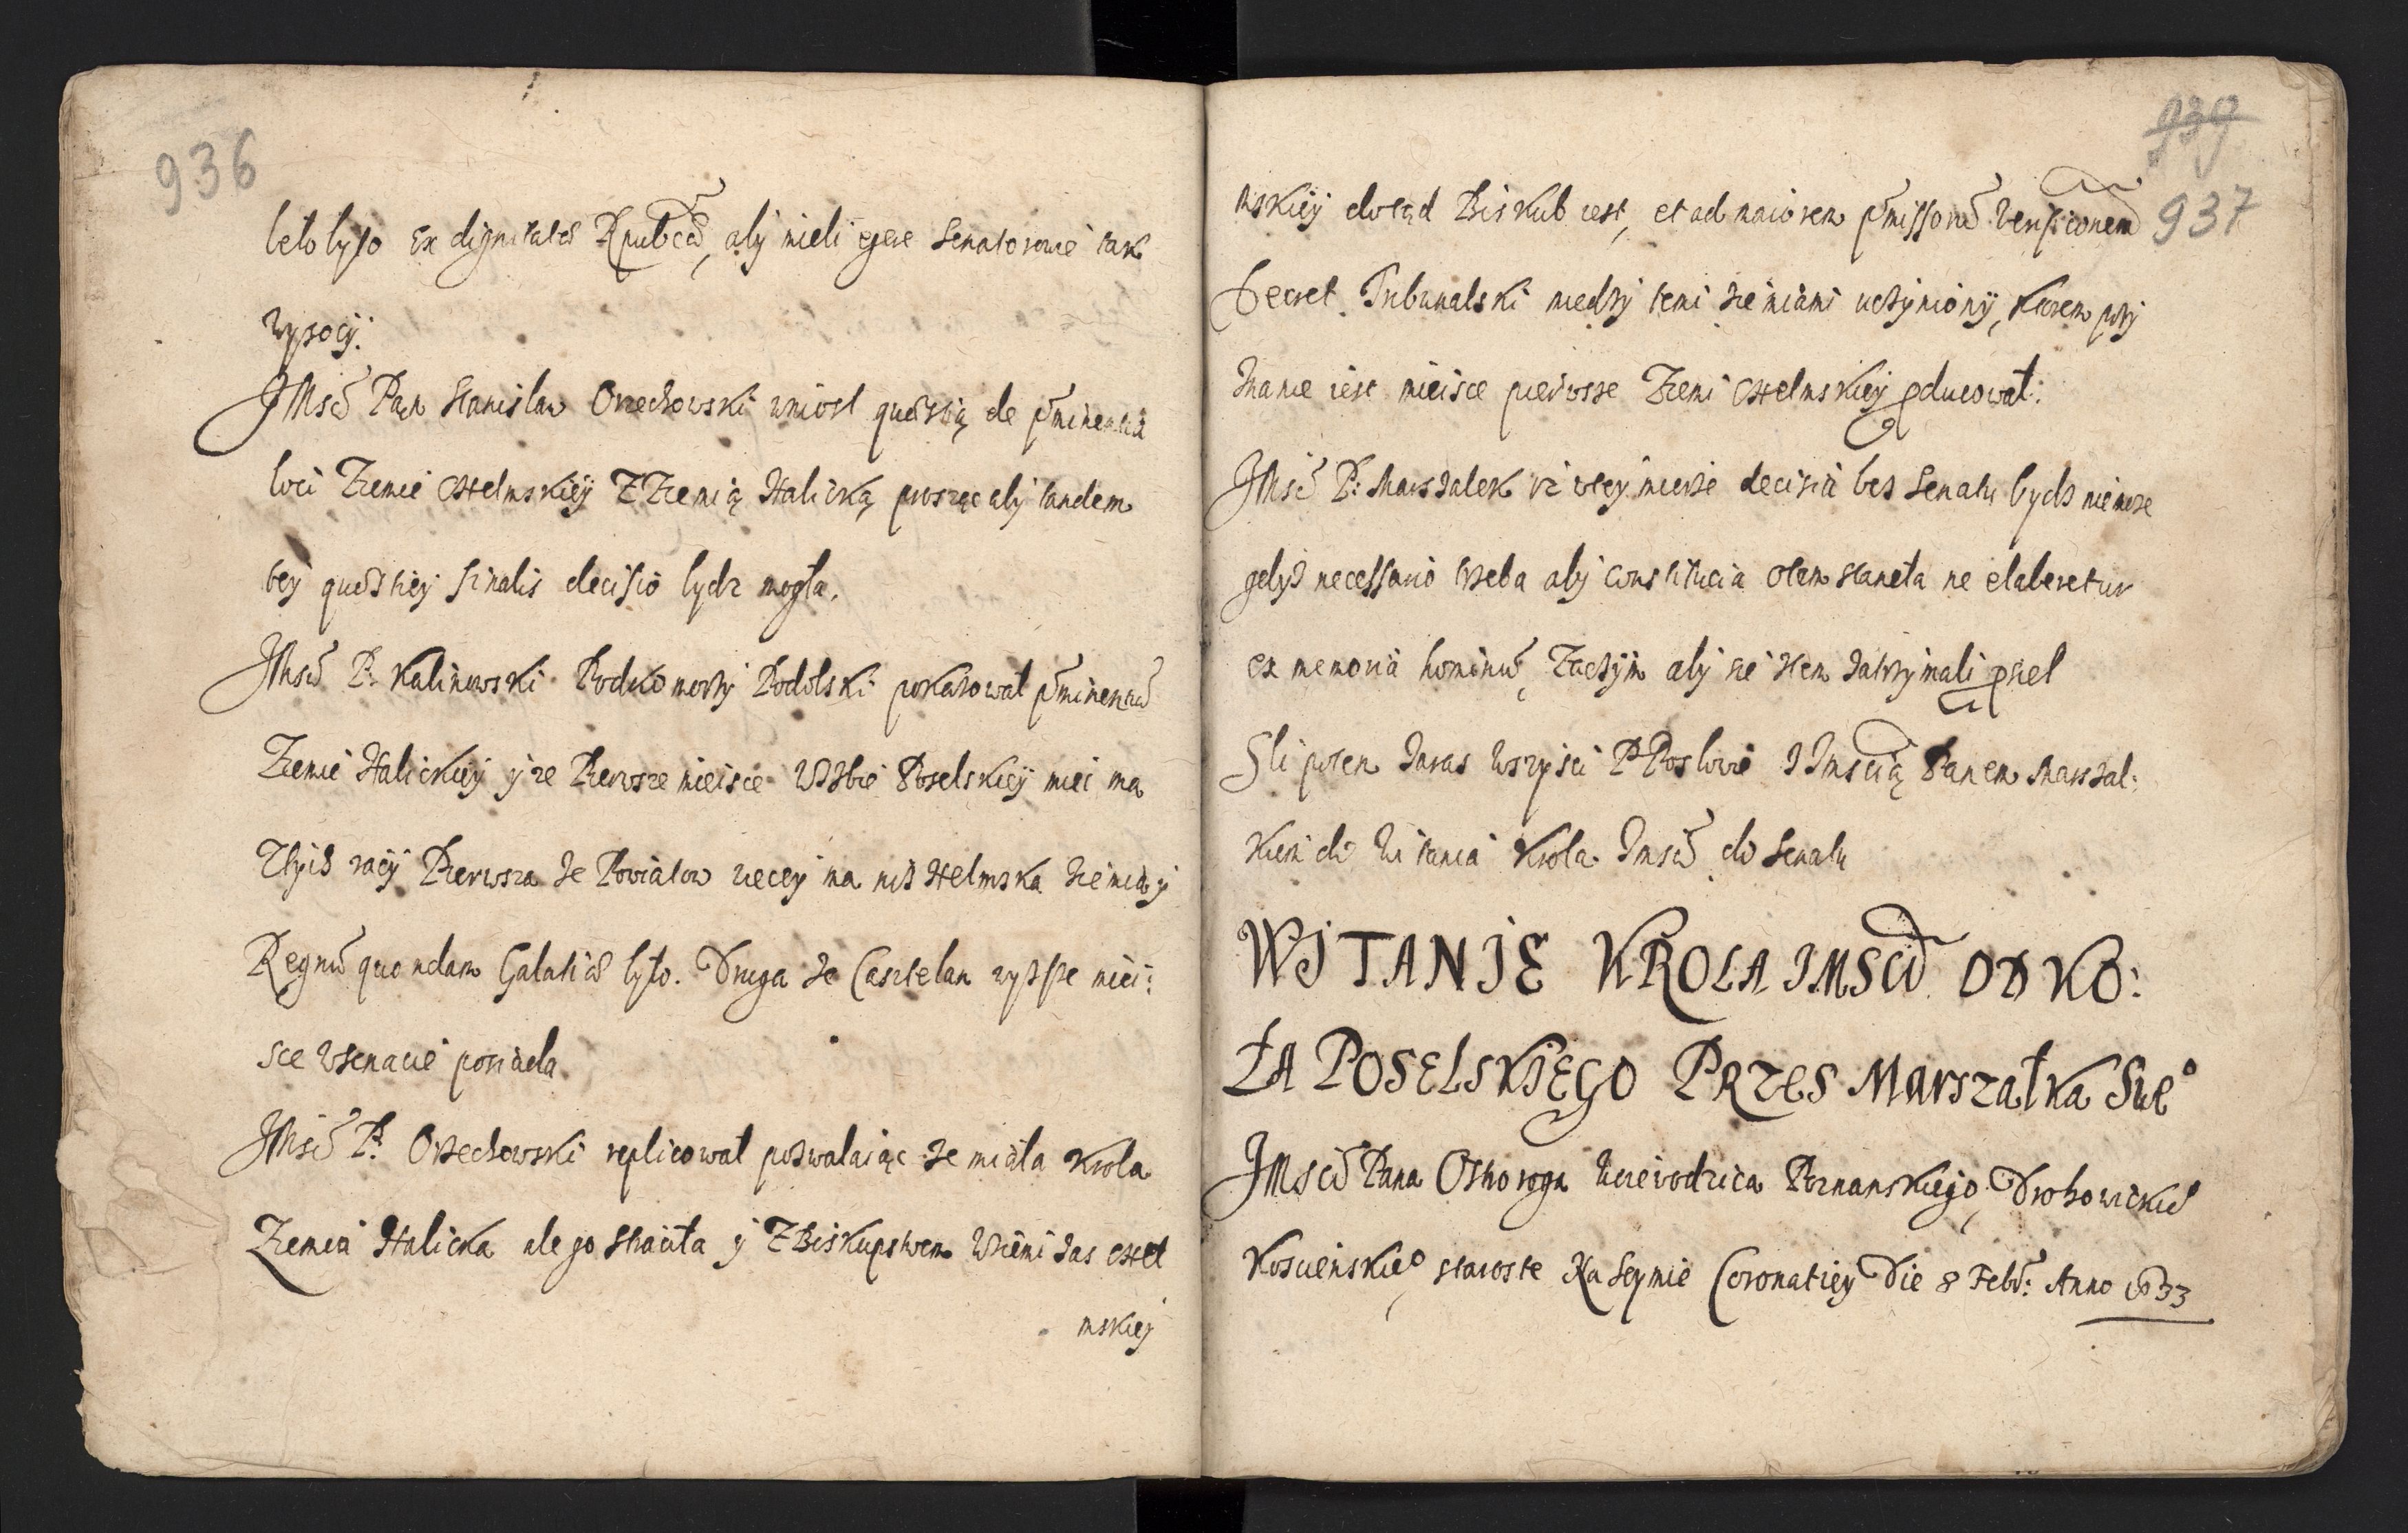 936
by to było ex dignitate Rpubcæ, aby mieli egere Senatorowie tak
wysocy.
JMsć Pan Stanislaw Orzechowski wniosł quæstią de pminentia
loci Ziemie CHelmskiey Z Ziemią Halicką prosząc aby tandem
tey quæstiey finalis decisio bydz mogła.
JMsć P. Kalinowski Podkomorzy Podolski pokazował pminentiã
Ziemie Halickiey y ze Pierwsze mieisce W Izbie Poselskiey miec ma
Z tyis racÿ Pierwsza ze Powiatow wiecey ma niż Helmska Ziemia y
Regnũ quondam Galatiæ było. Druga ze Casztelan wyższe miei:
sce w Senacie posiada
JMsć P. Orzechowski replicował pozwalaiąc że miała Krola
Ziemia Halicka ale go straciła y Z Biskupstwem W Ziemi zas CHeł
mskiey
939
937
mskiey dotąd Biskub iest, et ad maiorem pmissorũ
Decret Tribunalski miedzy temi Ziemiami uczyniony, ktorem przy
znane iest mieisce pierwsze Ziemi CHelmskiey pducował:
JMsć P: Marszalek iż w tey mierze decisia bez Senatu bydz nie może
gdyż necessario trzeba aby constitucia o tem staneła ne elaberetur
ex memoria hominũ, Zaczym aby sie s tem zatrzymali psiel
Sli potem zaras wszysci PP Posłowie z Jmscią Panem Marszal:
kiem do Witania Krola Jmsci do Senatu
WITANIE KROLA IMSCI OD KO:
ŁA POSELSKIEGO PRZES Marszałka Sweº
JMsci Pana Ostroroga Woiewodzica Poznanskiego, Drohowickiº
Koscienskieº, staroste Na Seymie Coronatiey Die 8 Febr: Anno 1633